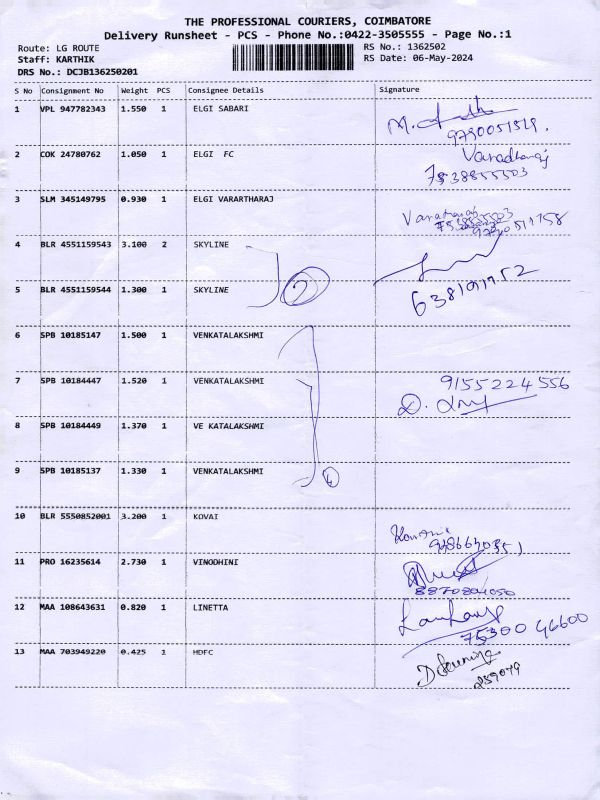 THE PROFESSIONAL COURIERS, COIMBATORE
Delivery Runsheet - PCS - Phone No.:0422-3505555 - Page No.:1
Route: LG ROUTE RS No.: 1362502
Staff: KARTHIK RS Date: 06-May-2024
DRS No.: DCJB136250201
S No Consignment No Weight PCS Consignee Details Signature
1 VPL 947782343 1.550 1 ELGI SABARI
2 COK 24780762 1.050 1 ELGI FC Varadharaj
7538855503
3 SLM 345149795 0.930 1 ELGI VARARTHARAJ
4 BLR 4551159543 3.100 2 SKYLINE
5 BLR 4551159544 1.300 1 SKYLINE
6 SPB 10185147 1.500 1 VENKATALAKSHMI
7 SPB 10184447 1.520 1 VENKATALAKSHMI 9155224556
8 SPB 10184449 1.370 1 VE KATALAKSHMI
9 SPB 10185137 1.330 1 VENKATALAKSHMI
4
10 BLR 5550852001 3.200 1 KOVAI
11 PRO 16235614 2.730 1 VINODHINI
8870804050
12 MAA 108643631 0.820 1 LINETTA
75300 46600
13 MAA 703949220 0.425 1 HDFC
259079